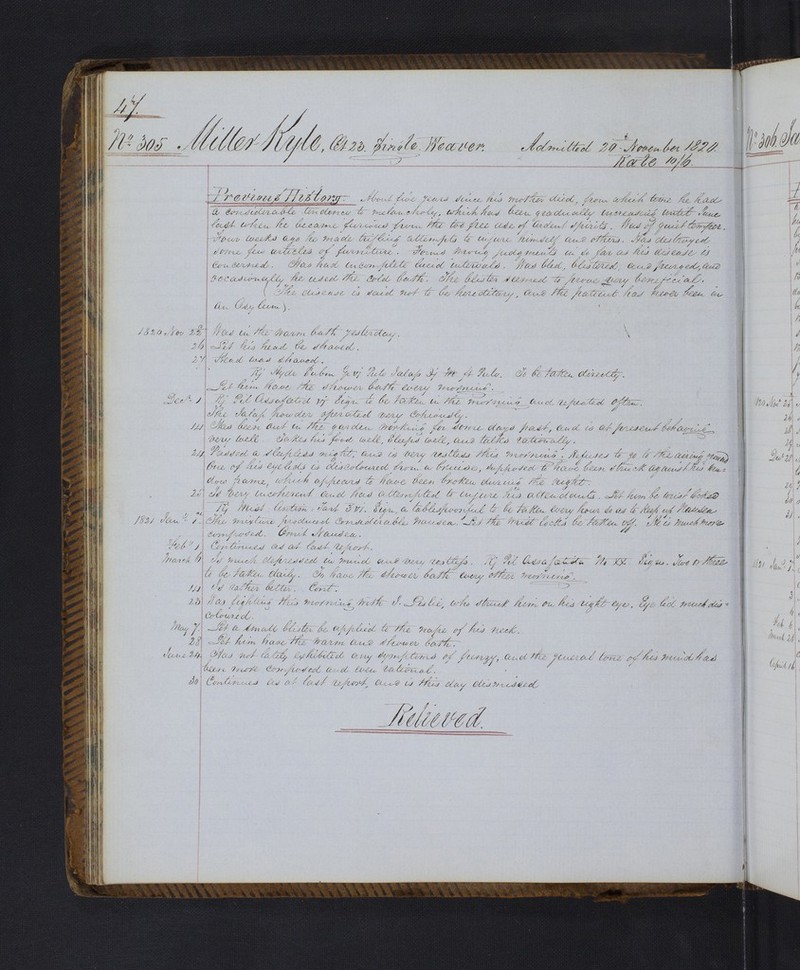 47.
No. 305 Miller Kyle, Æt 23. Single Weaver. Admitted 20th November 1820.
Rate 10/6
Previous History. About five years since his mother died, from which time he had
a considerable tendency to melancholy, which has been gradually increasing until June
last when he became furious from the too free use of ardent spirits. Was of quiet temper.
Four weeks ago he made trifling attempts to injure himself and others. Has destroyed
some few articles of furniture. Forms wrong judgments in so far as his disease is
concerned. Has had incomplete lucid intervals. Was bled, blistered, and purged, and
occasionally he used the cold bath. The blister seemed to prove very beneficial.
(The disease is said not to be hereditary, and the patient has never been in
an Asylum).
1820 Nov 22d Was in the warm bath yesterday.
26 Let his head be shaved.
27 Head was shaved.
Rj Hyd. Submur. Gr vj Pulv Jalap ʒj M. ft Pulv. To be taken directly.
Let him have the shower bath every morning.
Decr 1 Rj Pil Assafoetid vj Sign to be taken in the morning and repeated often.
The Jalap powder operated very copiously.
14 Has been out in the garden working for some days past, and is at present behaving
very well. Takes his food well, sleeps well, and talks rationally.
24 Passed a sleepless night, and is very restless this morning; Refuses to go to the airing ground
One of his eyelids is discoloured from a bruise, supposed to have been struck against his win-
dow frame, which appears to have been broken during the night.
25 Is very incoherent and has attempted to injure his attendants. Let him be wrist locked
Rj Mist. Antim. Tart ʒvi. Sign. a tablespoonful to be taken every hour so as to keep up Nausea
1821 Jany 1. The mixture produced considerable nausea. Let the wrist locks be taken off. He is much more
composed. Omit Nausea.
Feby 1 Continues as at last report.
March 4 Is much depressed in mind and very restless. Rj Pil Assafoetida No XX. Signa. Two or three
to be taken daily. To have the shower bath every other morning.
14 Is rather better. Cont.
23 Was fighting this morning with J. Leslie, who struck him on his right eye. Eye lid much dis-
coloured.
May 7. Let a small blister be applied to the nape of his neck.
28 Let him have the warm and shower bath.
June 24 Has not lately exhibited any symptoms of frenzy, and the general tone of his mind has
been more composed and even rational.
30 Continues as at last report, and is this day dismissed
Relieved.
No. 306